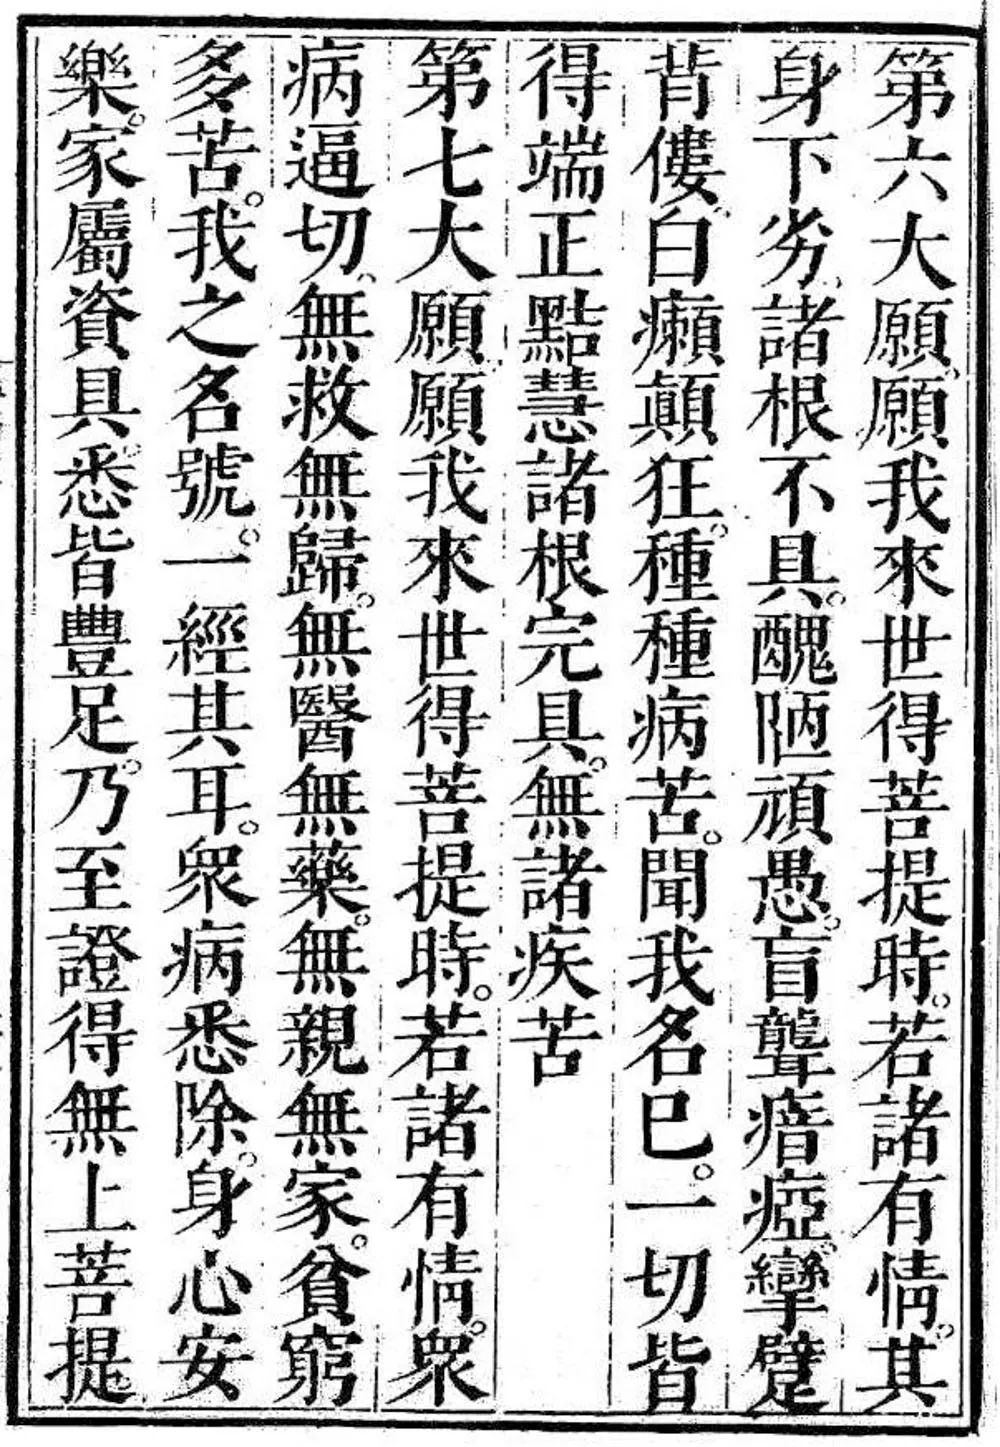 第六大願、願我來世得菩提時。若諸有情。其
身下劣、諸根不具。醜陋頑愚。盲聾瘖瘂。攣躄
背僂。白癩顛狂。種種病苦。聞我名巳。一切皆
得端正黠慧諸根完具。無諸疾苦
第七大願、願我來世得菩提時。若諸有情。眾
病逼切、無救無歸。無醫無藥。無親無家。貧窮
多苦。我之名號。一經其耳。眾病悉除。身心安
樂。家屬資具。悉皆豐足。乃至證得無上菩提